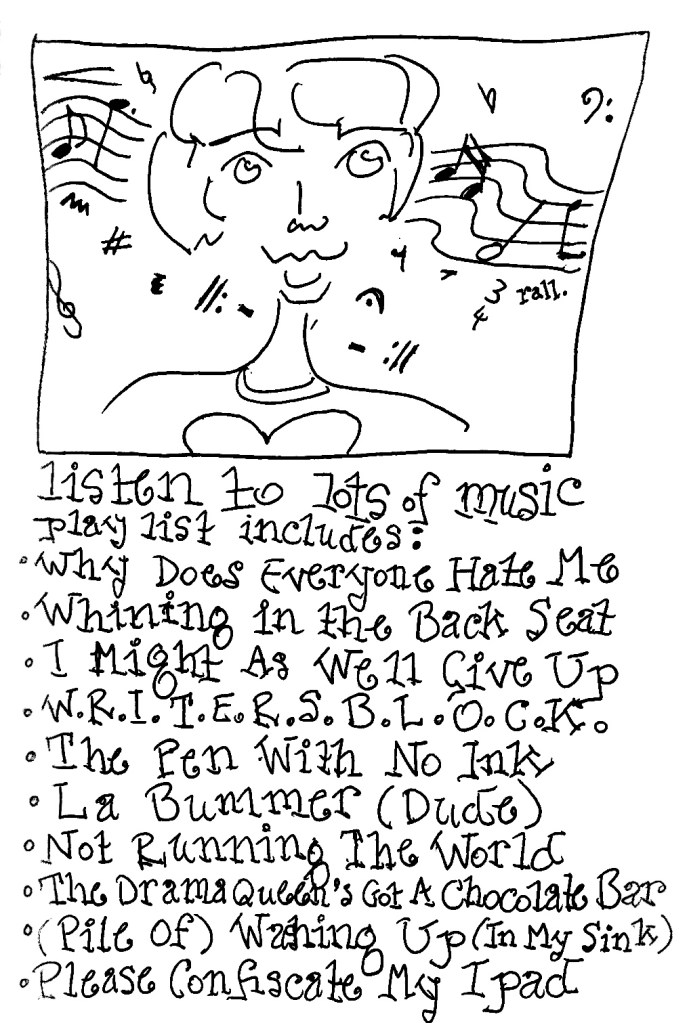 rall.
3
4
listen to lots of music
play list includes:
• Why Does Everyone Hate Me
• Whining in the Back Seat
• I Might As Well Give Up
• W.R.I.T.E.R.S.B.L.O.C.K.
• The Pen With No Ink
• La Bummer (Dude)
• Not Running The World
• The Drama Queen's Got A Chocolate Bar
• (Pile Of) Washing Up (In My Sink)
• Please Confiscate My Ipad